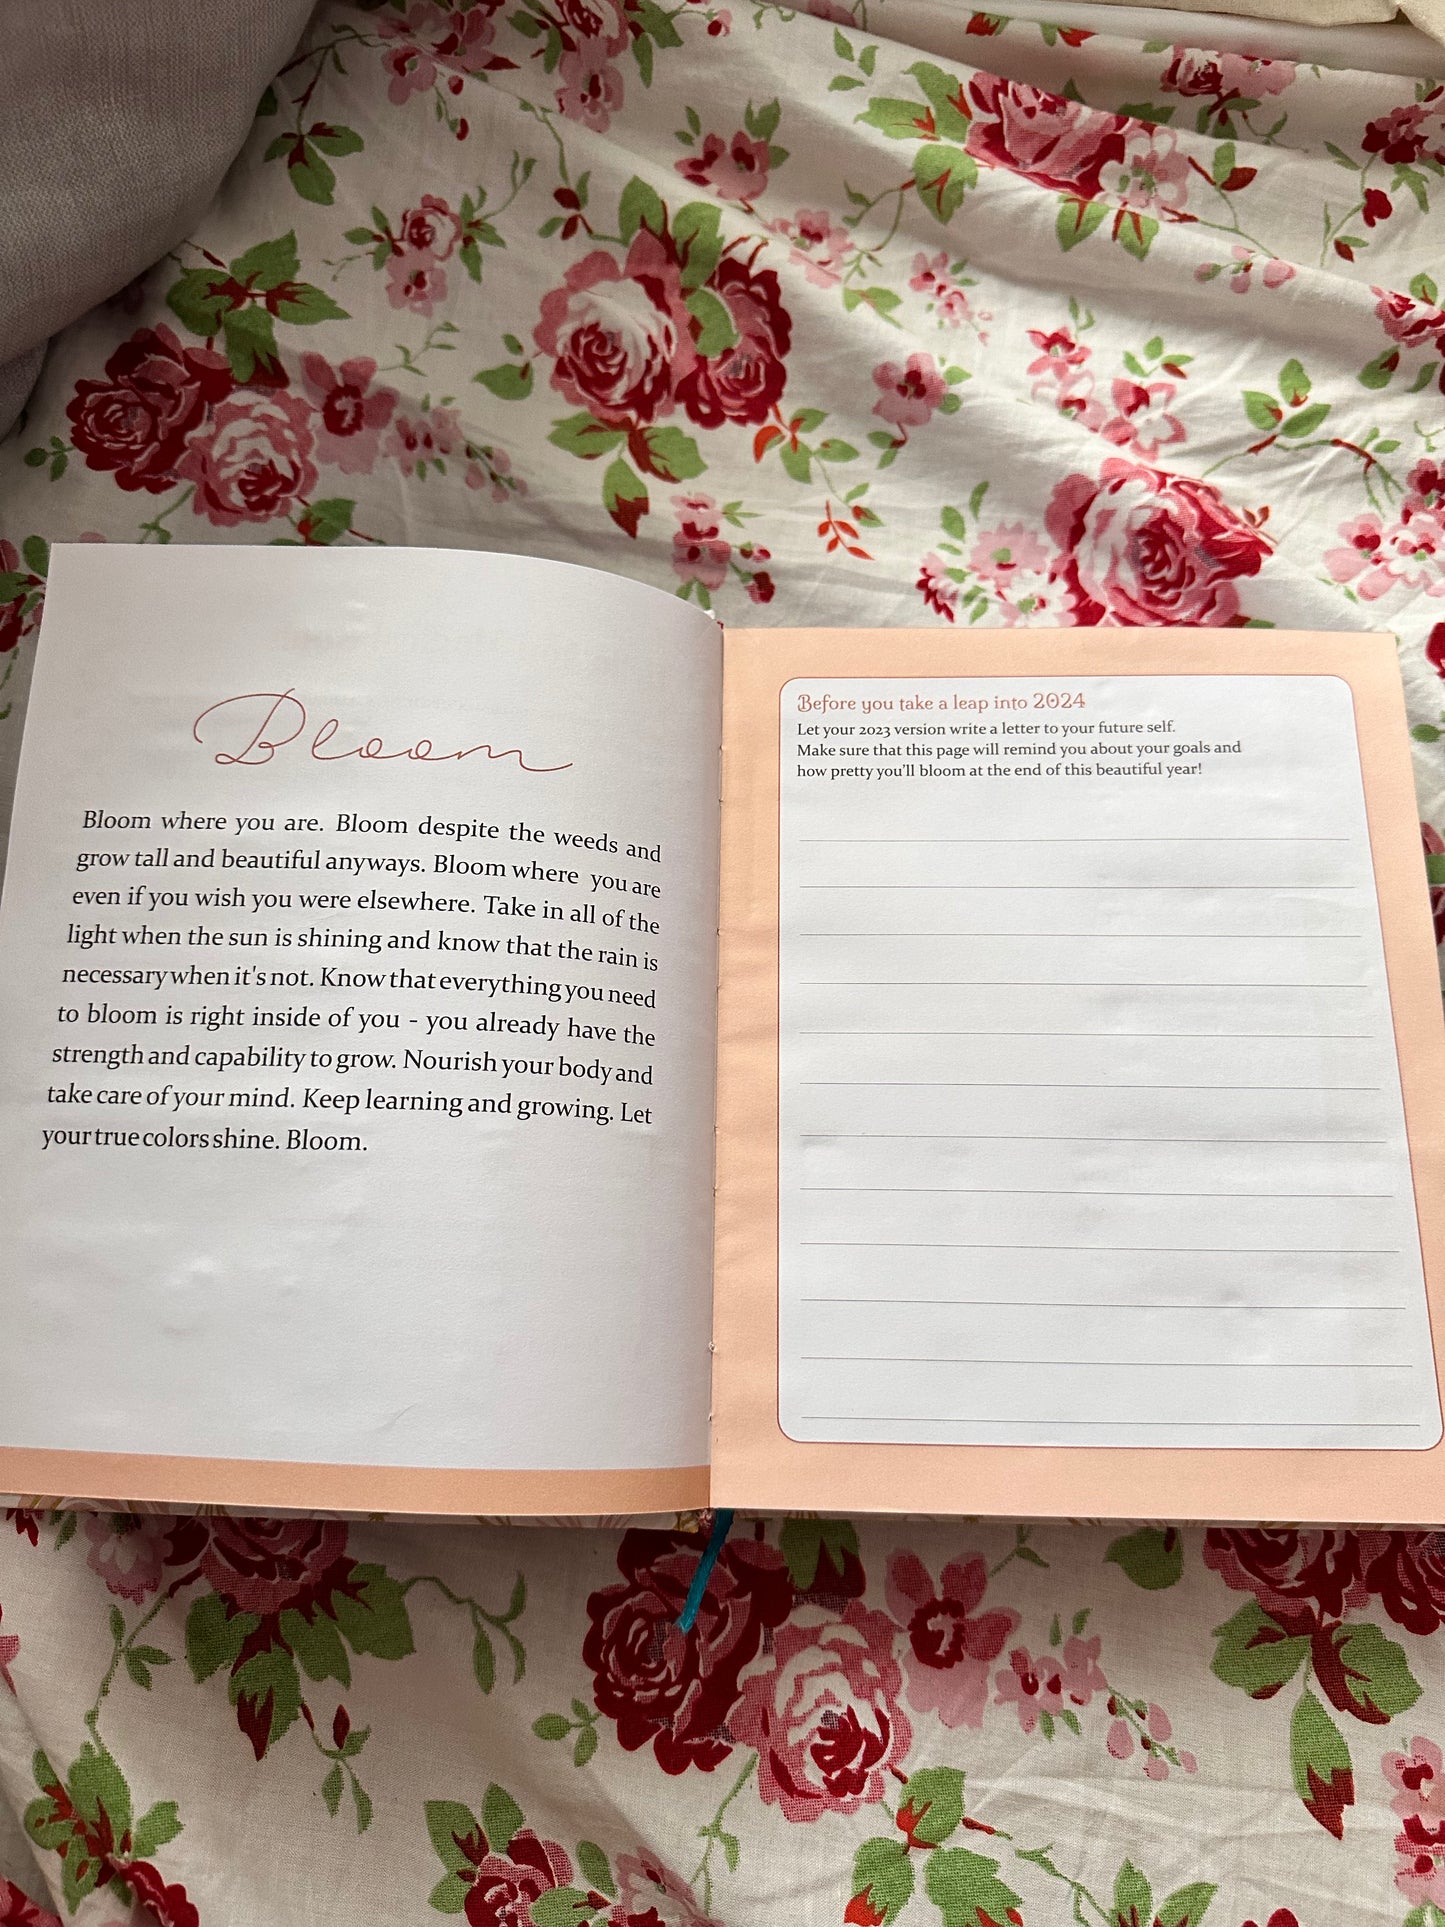 Bloom
Bloom where you are. Bloom despite the weeds and
grow tall and beautiful anyways. Bloom where you are
even if you wish you were elsewhere. Take in all of the
light when the sun is shining and know that the rain is
necessary when it's not. Know that everything you need
to bloom is right inside of you - you already have the
strength and capability to grow. Nourish your body and
take care of your mind. Keep learning and growing. Let
your true colors shine. Bloom.
Before you take a leap into 2024
Let your 2023 version write a letter to your future self.
Make sure that this page will remind you about your goals and
how pretty you'll bloom at the end of this beautiful year!